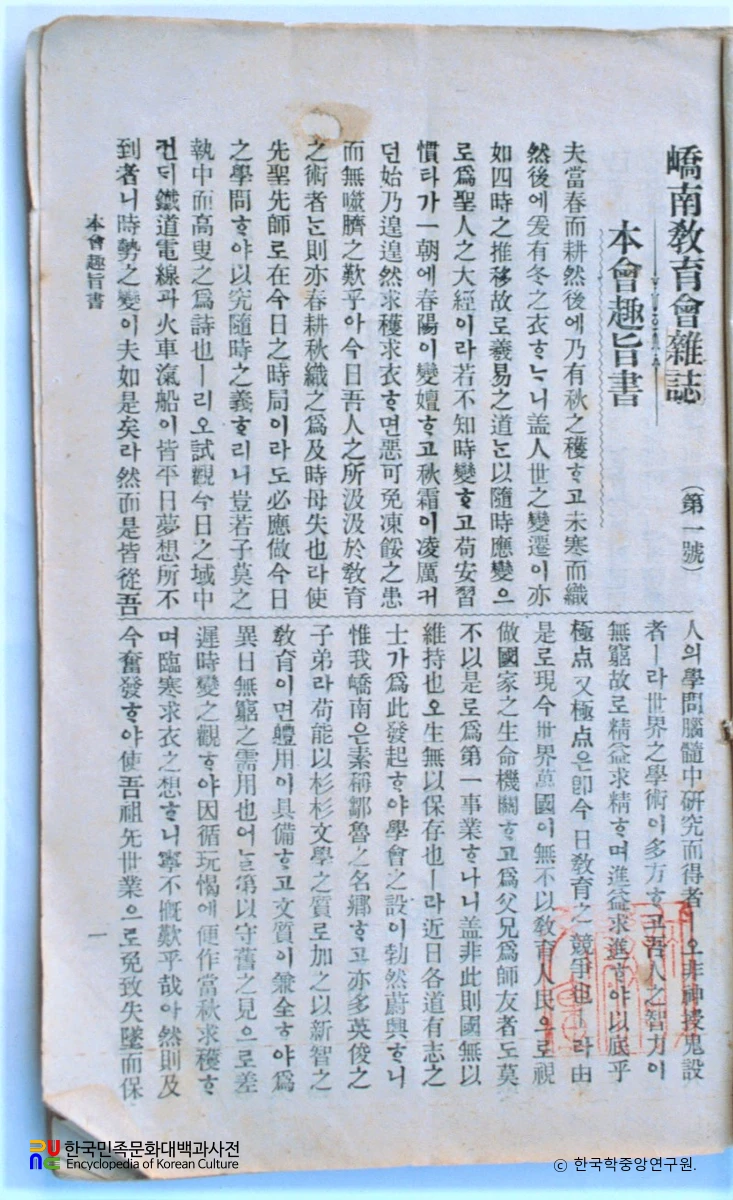 嶠南敎育會雜誌
（第一號）
本會趣旨書
夫當春而耕然後에乃有秋之穫ᄒᆞ고未寒而織
然後에爰有冬之衣ᄒᆞᄂᆞ니盖人世之變遷이亦
如四時之推移故로羲易之道ᄂᆞᆫ以隨時應變으
로爲聖人之大經이라若不知時變ᄒᆞ고苟安習
慣타가一朝에春陽이變嬗ᄒᆞ고秋霜이凌厲커
던始乃遑遑然求穫求衣ᄒᆞ면惡可免凍餒之患
而無噬臍之歎乎아今日吾人之所汲汲於敎育
之術者ᄂᆞᆫ則亦春耕秋織之爲及時母失也라使
先聖先師로在今日之時局이라도必應做今日
之學問ᄒᆞ야以究隨時之義ᄒᆞ리니豈若子莫之
執中而高叟之爲詩也ㅣ리오試觀今日之域中
컨ᄃᆡ鐵道電線과火車滊船이皆平日夢想所不
到者니時勢之變이夫如是矣라然而是皆從吾
人의學問腦髓中硏究而得者ㅣ오非神授鬼設
者ㅣ라世界之學術이多方ᄒᆞ고吾人之智力이
無窮故로精益求精ᄒᆞ며進益求進ᄒᆞ야以底乎
極点又極点은卽今日敎育之競爭也ㅣ라由
是로現今世界萬國이無不以敎育人民으로視
做國家之生命機關ᄒᆞ고爲父兄爲師友者도莫
不以是로爲第一事業ᄒᆞ나니盖非此則國無以
維持也오生無以保存也ㅣ라近日各道有志之
士가爲此發起ᄒᆞ야學會之設이勃然蔚興ᄒᆞ니
惟我嶠南은素稱鄒魯之名鄕ᄒᆞ고亦多英俊之
子弟라苟能以彬彬文學之質로加之以新智之
敎育이면軆用이具備ᄒᆞ고文質이兼全ᄒᆞ야爲
異日無窮之需用也어ᄂᆞᆯ第以守舊之見으로差
遲時變之觀ᄒᆞ야因循玩愒에便作當秋求穫ᄒᆞ
며臨寒求衣之想ᄒᆞ니寧不慨歎乎哉아然則及
今奮發ᄒᆞ야使吾祖先世業으로免致失墜而保
本會趣旨書
一
한국민족문화대백과사전
Encyclopedia of Korean Culture
ⓒ 한국학중앙연구원.